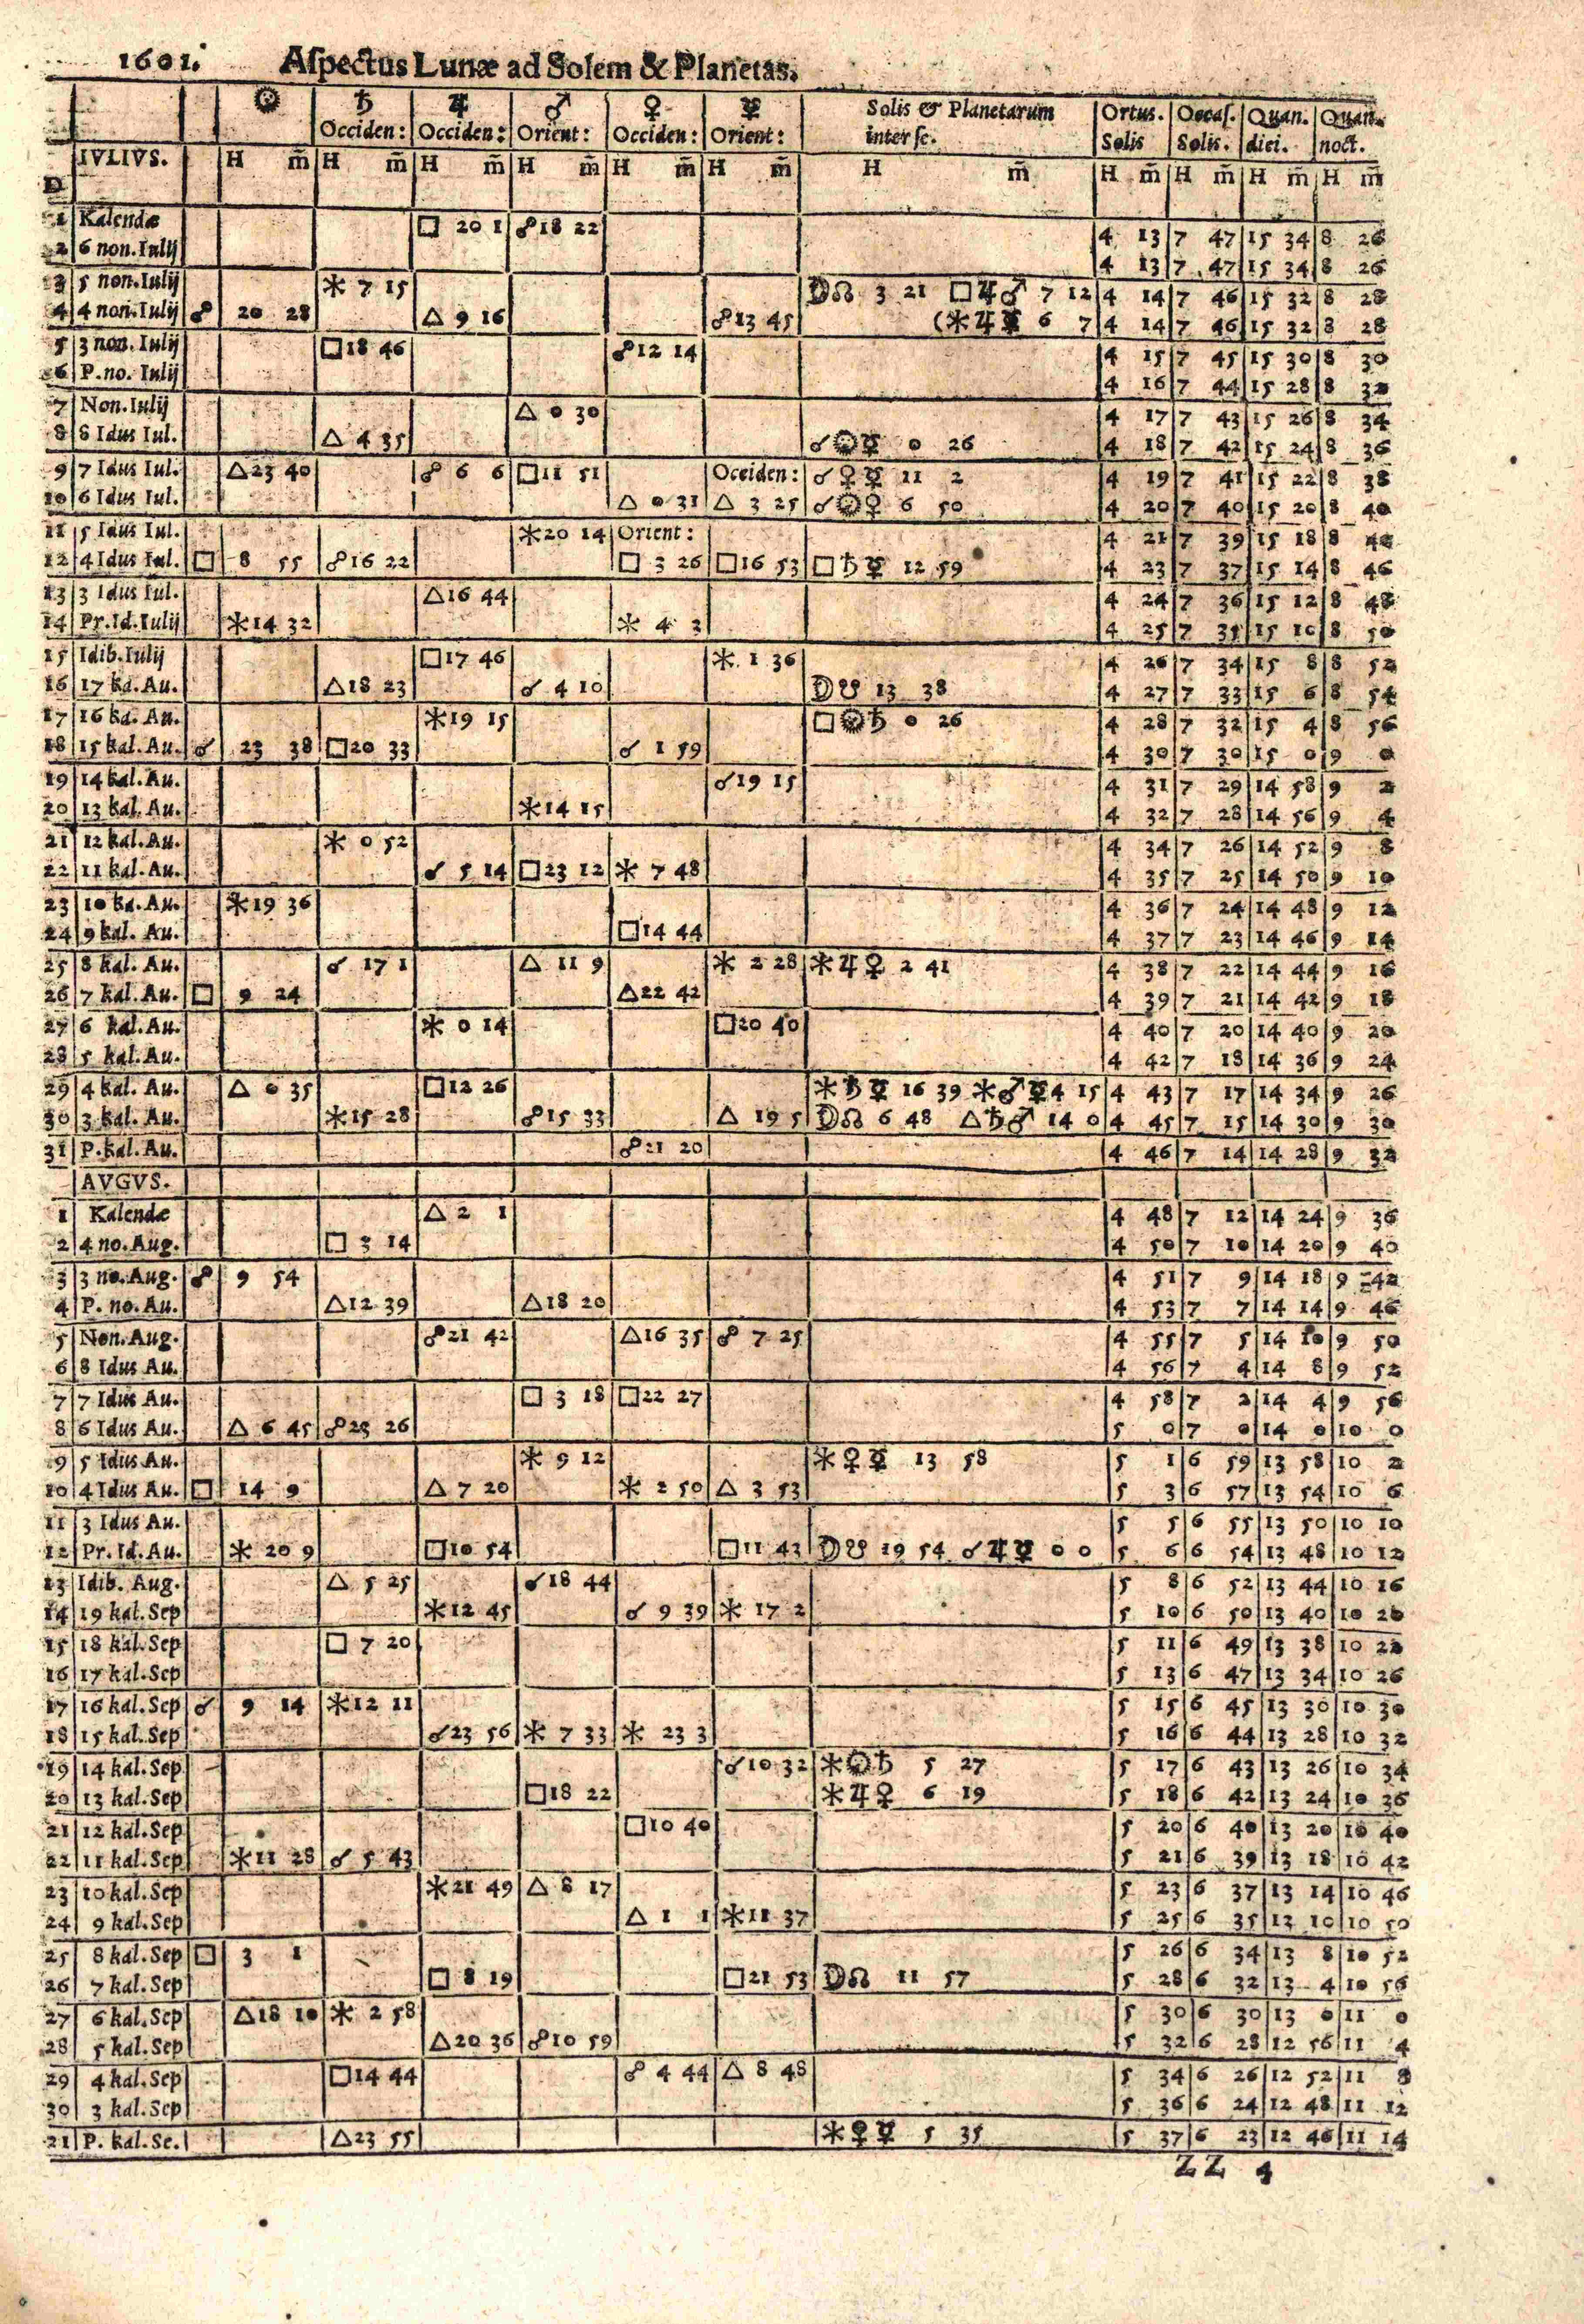 1601. Aſpectus Lunæ ad Solem & Planetas.
☉ ♄ ♃ ♂ ♀ ☿ Solis & Planetarum Ortus. Occaſ. Quan. Quan.
Occiden: Occiden: Orient: Occiden: Orient: inter ſe. Solis Solis. diei. noct.
IVLIVS. H m̃ H m̃ H m̃ H m̃ H m̃ H m̃ H m̃ H m̃ H m̃ H m̃ H m̃
D
1 Kalendæ □ 20 1 ☍ 18 22 4 13 7 47 15 34 8 26
2 6 non. Iulij 4 13 7 47 15 34 8 26
3 5 non. Iulij ⚹ 7 15 ☽☊ 3 21 □♃♂ 7 12 4 14 7 46 15 32 8 28
4 4 non. Iulij ☍ 20 28 △ 9 16 ☍ 13 45 (⚹♃☿ 6 7 4 14 7 46 15 32 8 28
5 3 non. Iulij □ 18 46 ☍ 12 14 4 15 7 45 15 30 8 30
6 P. no. Iulij 4 16 7 44 15 28 8 32
7 Non. Iulij △ 0 30 4 17 7 43 15 26 8 34
8 8 Idus Iul. △ 4 35 ☌☉☿ 0 26 4 18 7 42 15 24 8 36
9 7 Idus Iul. △ 23 40 ☍ 6 6 □ 11 51 Occiden: ☌♀☿ 11 2 4 19 7 41 15 22 8 38
10 6 Idus Iul. △ 0 31 △ 3 25 ☌☉♀ 6 50 4 20 7 40 15 20 8 40
11 5 Idus Iul. ⚹ 20 14 Orient: 4 21 7 39 15 18 8 42
12 4 Idus Iul. □ 8 55 ☍ 16 22 □ 3 26 □ 16 53 □♄☿ 12 59 4 23 7 37 15 14 8 46
13 3 Idus Iul. △ 16 44 4 24 7 36 15 12 8 48
14 Pr. Id. Iulij ⚹ 14 32 ⚹ 4 3 4 25 7 35 15 10 8 50
15 Idib. Iulij □ 17 46 ⚹ 1 36 4 26 7 34 15 8 8 52
16 17 ka. Au. △ 18 23 ☌ 4 10 ☽☋ 13 38 4 27 7 33 15 6 8 54
17 16 ka. Au. ⚹ 19 15 □☉♄ 0 26 4 28 7 32 15 4 8 56
18 15 kal. Au. ☌ 23 38 □ 20 33 ☌ 1 59 4 30 7 30 15 0 9 0
19 14 kal. Au. ☌ 19 15 4 31 7 29 14 58 9 2
20 13 kal. Au. ⚹ 14 15 4 32 7 28 14 56 9 4
21 12 kal. Au. ⚹ 0 52 4 34 7 26 14 52 9 8
22 11 kal. Au. ☌ 5 14 □ 23 12 ⚹ 7 48 4 35 7 25 14 50 9 10
23 10 ka. Au. ⚹ 19 36 4 36 7 24 14 48 9 12
24 9 kal. Au. □ 14 44 4 37 7 23 14 46 9 14
25 8 kal. Au. ☌ 17 1 △ 11 9 ⚹ 2 28 ⚹♃♀ 2 41 4 38 7 22 14 44 9 16
26 7 kal. Au. □ 9 24 △ 22 42 4 39 7 21 14 42 9 18
27 6 kal. Au. ⚹ 0 14 □ 20 40 4 40 7 20 14 40 9 20
28 5 kal. Au. 4 42 7 18 14 36 9 24
29 4 kal. Au. △ 0 35 □ 12 26 ⚹♄☿ 16 39 ⚹♂☿ 4 15 4 43 7 17 14 34 9 26
30 3 kal. Au. ⚹ 15 28 ☍ 15 33 △ 19 5 ☽☊ 6 48 △♄♂ 14 0 4 45 7 15 14 30 9 30
31 P. kal. Au. ☍ 21 20 4 46 7 14 14 28 9 32
AVGVS.
1 Kalendæ △ 2 1 4 48 7 12 14 24 9 36
2 4 no. Aug. □ 3 14 4 50 7 10 14 20 9 40
3 3 no. Aug. ☍ 9 54 4 51 7 9 14 18 9 42
4 P. no. Au. △ 12 39 △ 18 20 4 53 7 7 14 14 9 46
5 Non. Aug. ☍ 21 42 △ 16 35 ☍ 7 25 4 55 7 5 14 10 9 50
6 8 Idus Au. 4 56 7 4 14 8 9 52
7 7 Idus Au. □ 3 18 □ 22 27 4 58 7 2 14 4 9 56
8 6 Idus Au. △ 6 45 ☍ 23 26 5 0 7 0 14 0 10 0
9 5 Idus Au. ⚹ 9 12 ⚹♀☿ 13 58 5 1 6 59 13 58 10 2
10 4 Idus Au. □ 14 9 △ 7 20 ⚹ 2 50 △ 3 53 5 3 6 57 13 54 10 6
11 3 Idus Au. 5 5 6 55 13 50 10 10
12 Pr. Id. Au. ⚹ 20 9 □ 10 54 □ 11 43 ☽☋ 19 54 ☌♃☿ 0 0 5 6 6 54 13 48 10 12
13 Idib. Aug. △ 5 25 ☌ 18 44 5 8 6 52 13 44 10 16
14 19 kal. Sep ⚹ 12 45 ☌ 9 39 ⚹ 17 2 5 10 6 50 13 40 10 20
15 18 kal. Sep □ 7 20 5 11 6 49 13 38 10 22
16 17 kal. Sep 5 13 6 47 13 34 10 26
17 16 kal. Sep ☌ 9 14 ⚹ 12 11 5 15 6 45 13 30 10 30
18 15 kal. Sep ☌ 23 56 ⚹ 7 33 ⚹ 23 3 5 16 6 44 13 28 10 32
19 14 kal. Sep ☌ 10 32 ⚹☉♄ 5 27 5 17 6 43 13 26 10 34
20 13 kal. Sep □ 18 22 ⚹♃♀ 6 19 5 18 6 42 13 24 10 36
21 12 kal. Sep □ 10 40 5 20 6 40 13 20 10 40
22 11 kal. Sep ⚹ 11 28 ☌ 5 43 5 21 6 39 13 18 10 42
23 10 kal. Sep ⚹ 21 49 △ 8 17 5 23 6 37 13 14 10 46
24 9 kal. Sep △ 1 1 ⚹ 11 37 5 25 6 35 13 10 10 50
25 8 kal. Sep □ 3 1 5 26 6 34 13 8 10 52
26 7 kal. Sep □ 8 19 □ 21 53 ☽☊ 11 57 5 28 6 32 13 4 10 56
27 6 kal. Sep △ 18 10 ⚹ 2 58 5 30 6 30 13 0 11 0
28 5 kal. Sep △ 20 36 ☍ 10 59 5 32 6 28 12 56 11 4
29 4 kal. Sep □ 14 44 ☍ 4 44 △ 8 48 5 34 6 26 12 52 11 8
30 3 kal. Sep 5 36 6 24 12 48 11 12
21 P. kal. Se. △ 23 55 ⚹♀☿ 5 35 5 37 6 23 12 46 11 14
ZZ 4